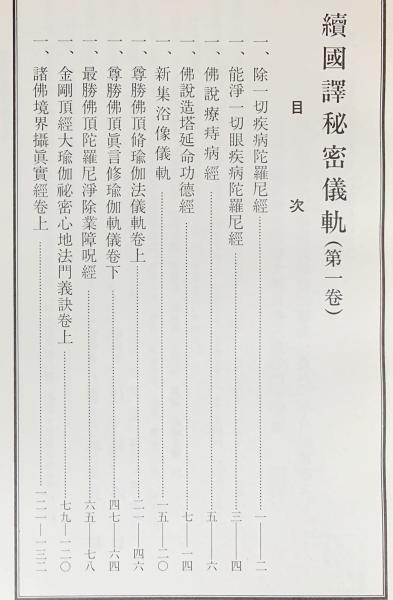 續國譯秘密儀軌(第一卷)
目次
一、除一切疾病陀羅尼經……一—二
一、能淨一切眼疾病陀羅尼經……三—四
一、佛說療痔病經……五—六
一、佛說造塔延命功德經……七—一四
一、新集浴像儀軌……一五—二〇
一、尊勝佛頂脩瑜伽法儀軌卷上……二一—四六
一、尊勝佛頂眞言修瑜伽軌儀卷下……四七—六四
一、最勝佛頂陀羅尼淨除業障呪經……六五—七八
一、金剛頂經大瑜伽祕密心地法門義訣卷上……七九—一二〇
一、諸佛境界攝眞實經卷上……一二一—一三二